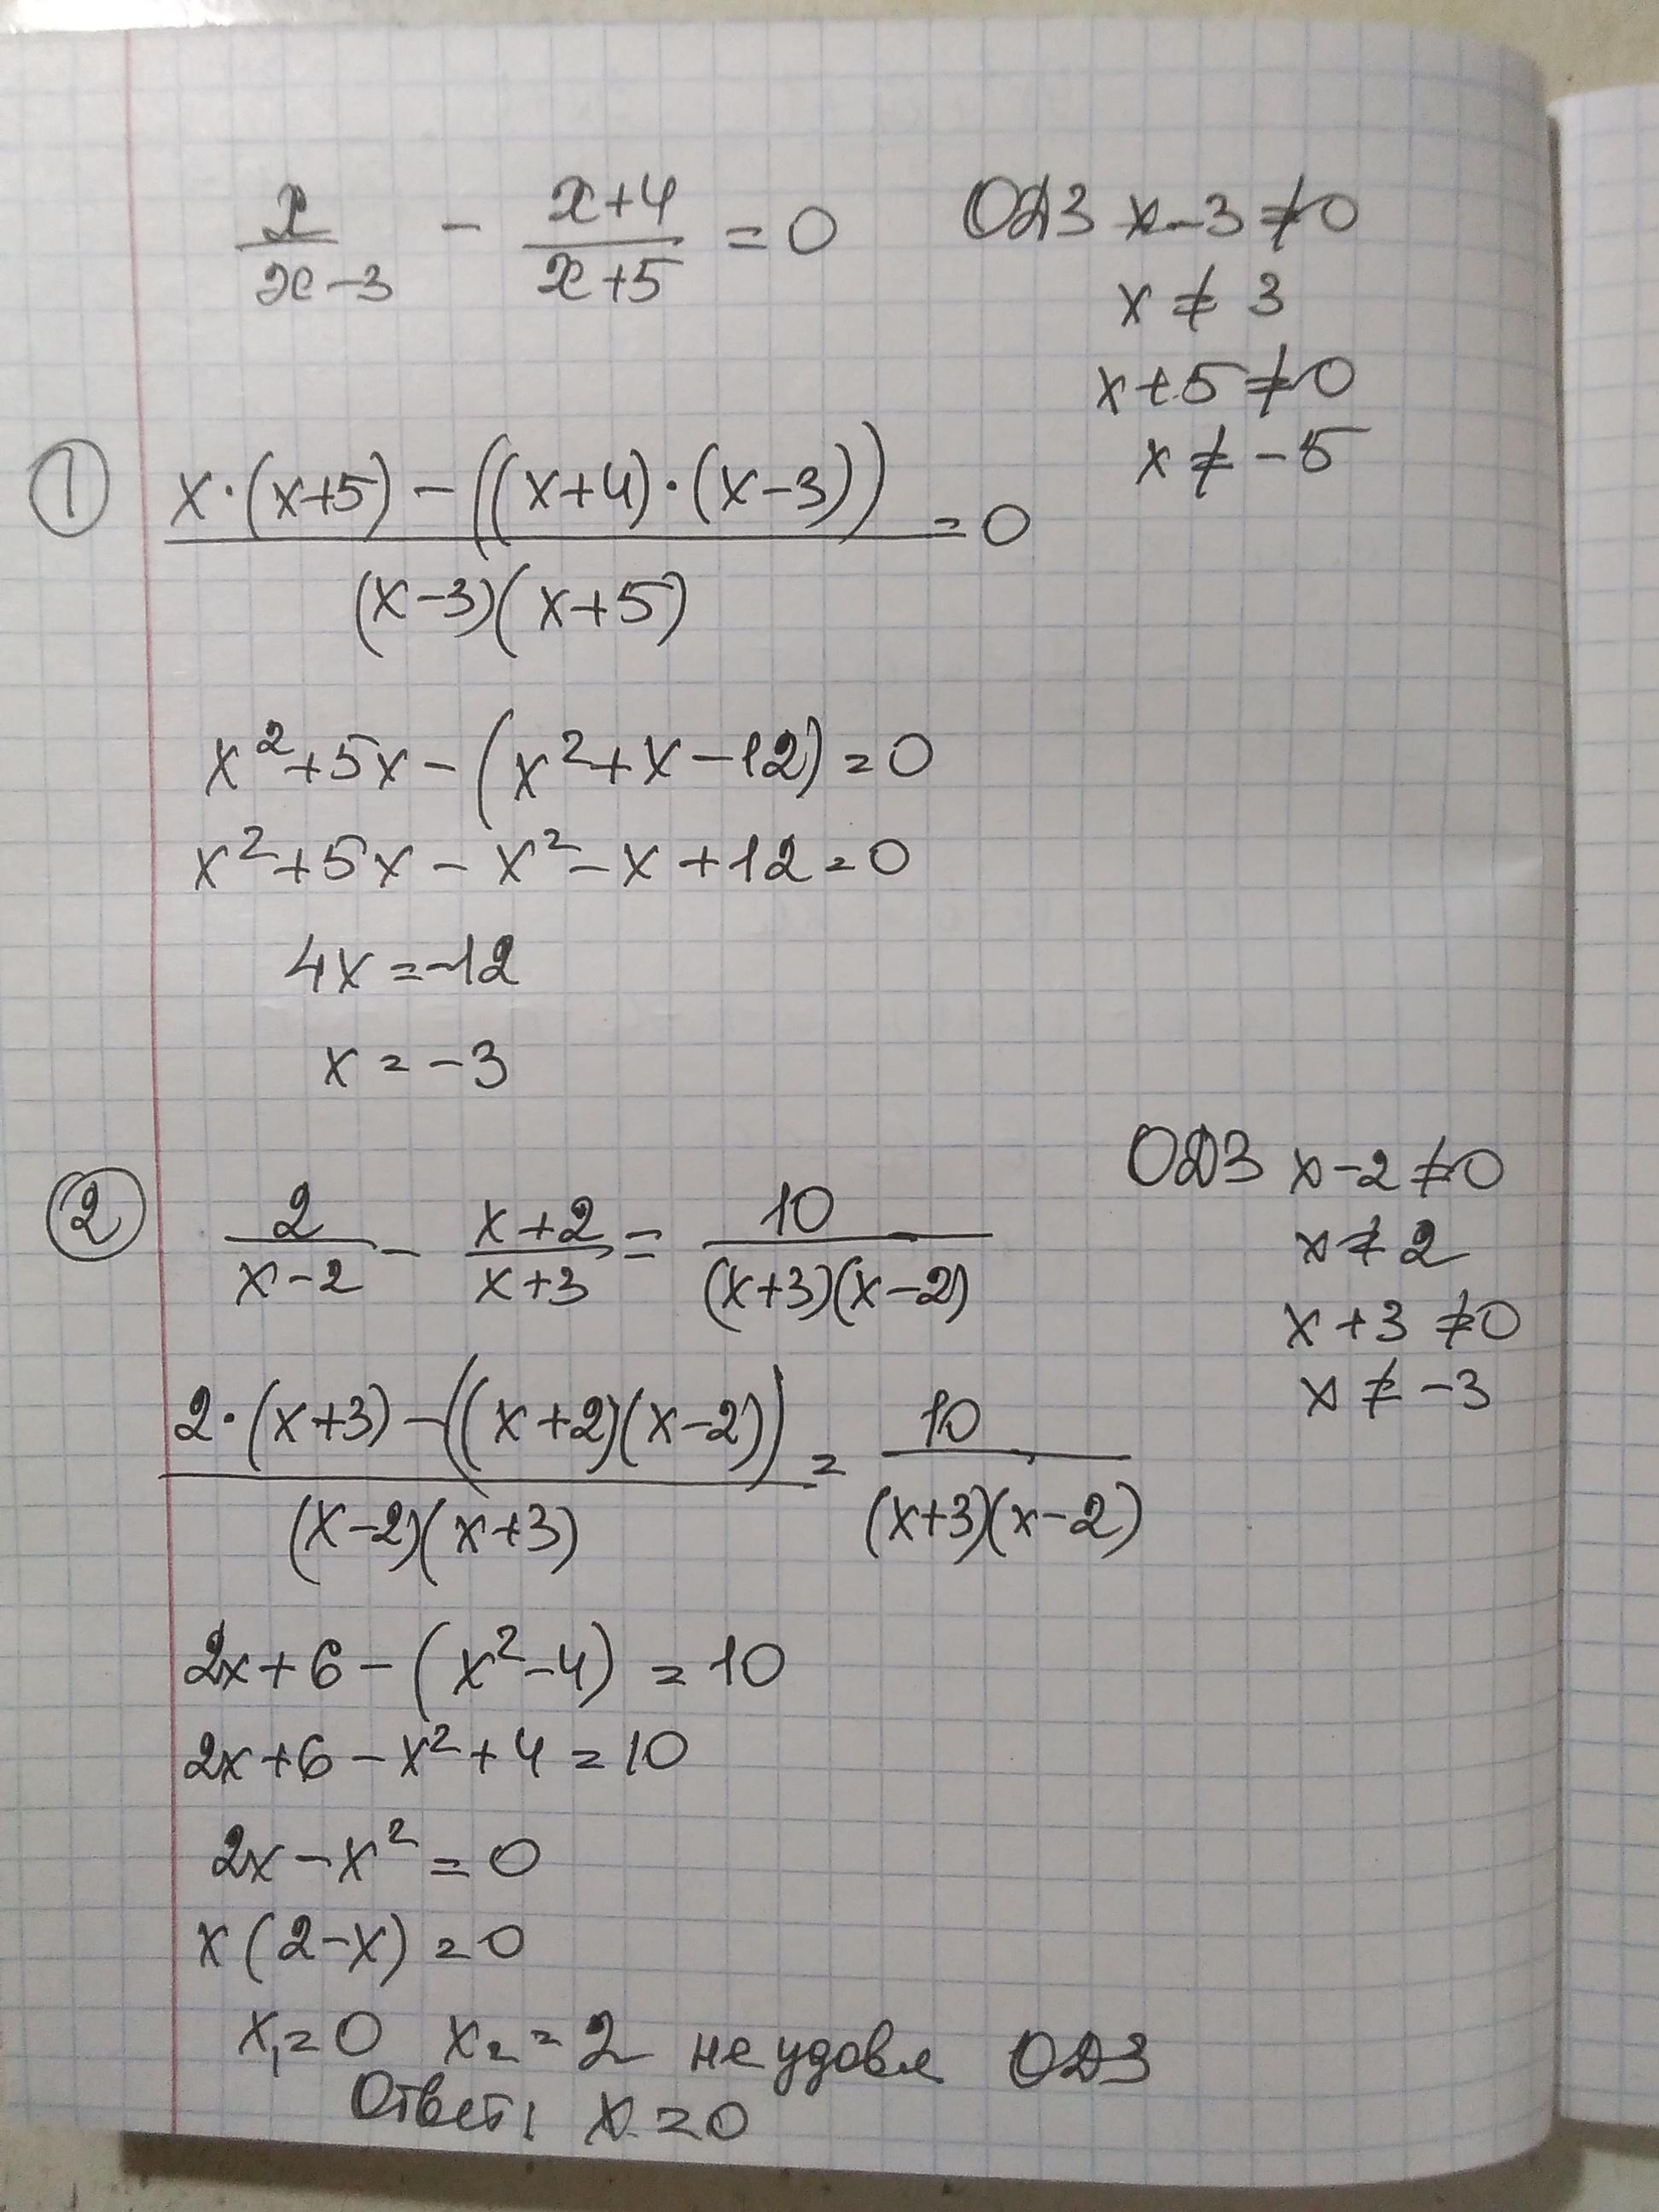 x/(x-3) - (x+4)/(x+5) = 0
ОДЗ x-3≠0
x ≠ 3
x+5≠0
x ≠ -5
① (x·(x+5) - ((x+4)·(x-3)))/((x-3)(x+5)) = 0
x²+5x-(x²+x-12)=0
x²+5x-x²-x+12=0
4x=-12
x = -3
② 2/(x-2) - (x+2)/(x+3) = 10/((x+3)(x-2))
ОДЗ x-2≠0
x≠2
x+3≠0
x ≠ -3
(2·(x+3)-((x+2)(x-2)))/((x-2)(x+3)) = 10/((x+3)(x-2))
2x+6-(x²-4) = 10
2x+6-x²+4=10
2x-x²=0
x(2-x)=0
x₁=0 x₂=2 не удовл ОДЗ
Ответ: x=0